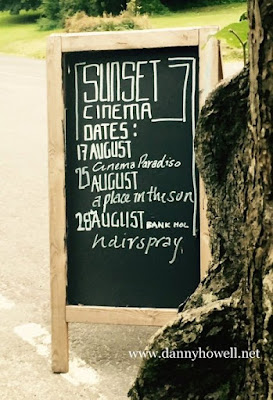 SUNSET
CINEMA
DATES:
17 AUGUST
Cinema Paradiso
25
AUGUST
a place in the sun
28 AUGUST BANK HOL
hairspray
www.dannyhowell.net